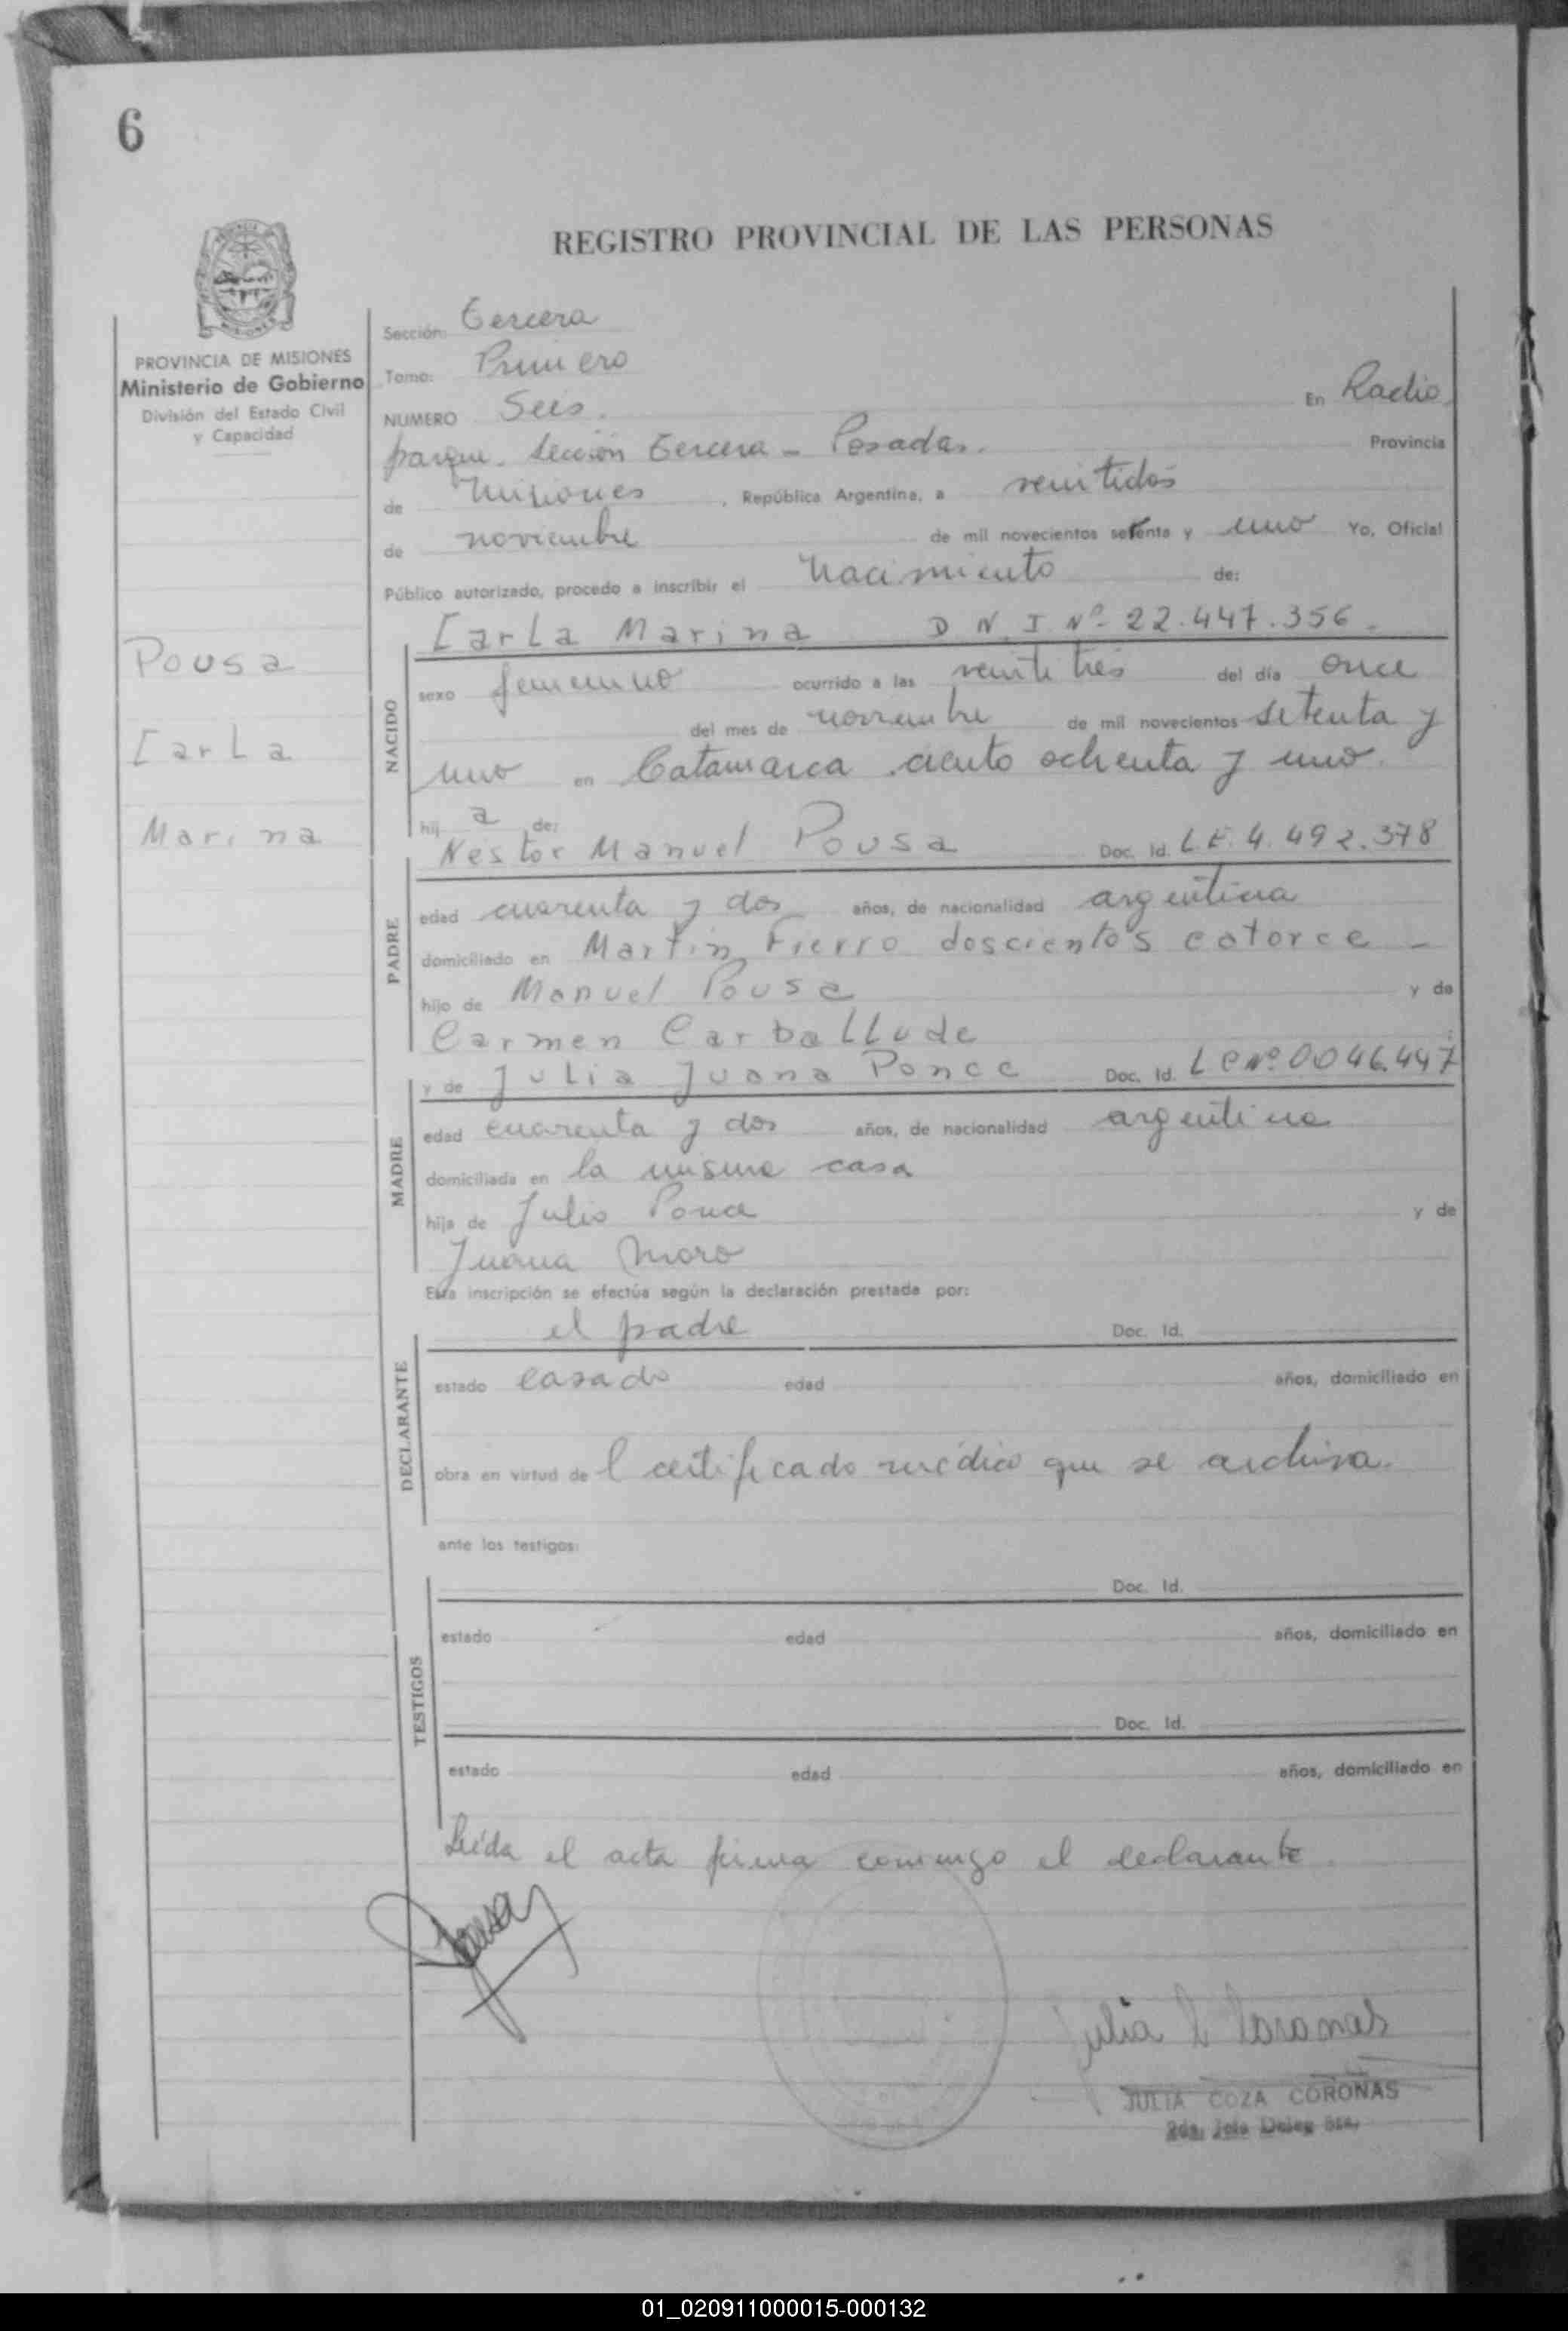 6
REGISTRO PROVINCIAL DE LAS PERSONAS
PROVINCIA DE MISIONES
Ministerio de Gobierno
División del Estado Civil
y Capacidad
Pousa
Carla
Marina
Sección: Tercera
Tomo: Primero
NUMERO Seis. En Radio
parque. Sección Tercera - Posadas. Provincia
de Misiones, República Argentina, a veintidós
de noviembre de mil novecientos setenta y uno Yo, Oficial
Público autorizado, procedo a inscribir el Nacimiento de:
Carla Marina D N I Nº 22.447.356.
NACIDO
sexo femenino ocurrido a las veinte tres del día once
del mes de noviembre de mil novecientos setenta y
uno en Catamarca ciento ochenta y uno.
hij a de:
Néstor Manuel Pousa Doc. Id. L E. 4.492.378
PADRE
edad cuarenta y dos años, de nacionalidad argentina
domiciliado en Martín Fierro doscientos catorce -
hijo de Manuel Pousa y de
Carmen Carballude
y de Julia Juana Ponce Doc. Id. L C Nº 0046.447
MADRE
edad cuarenta y dos años, de nacionalidad argentina
domiciliada en la misma casa
hija de Julio Ponce y de
Juana Moro
Esta inscripción se efectúa según la declaración prestada por:
el padre Doc. Id.
DECLARANTE
estado casado edad años, domiciliado en
obra en virtud de l certificado médico que se archiva.
ante los testigos:
Doc. Id.
TESTIGOS
estado edad años, domiciliado en
Doc. Id.
estado edad años, domiciliado en
Leída el acta firma conmigo el declarante.
Pousa
Julia C Coronas
JULIA COZA CORONAS
2da. Jefa Deleg
01_020911000015-000132